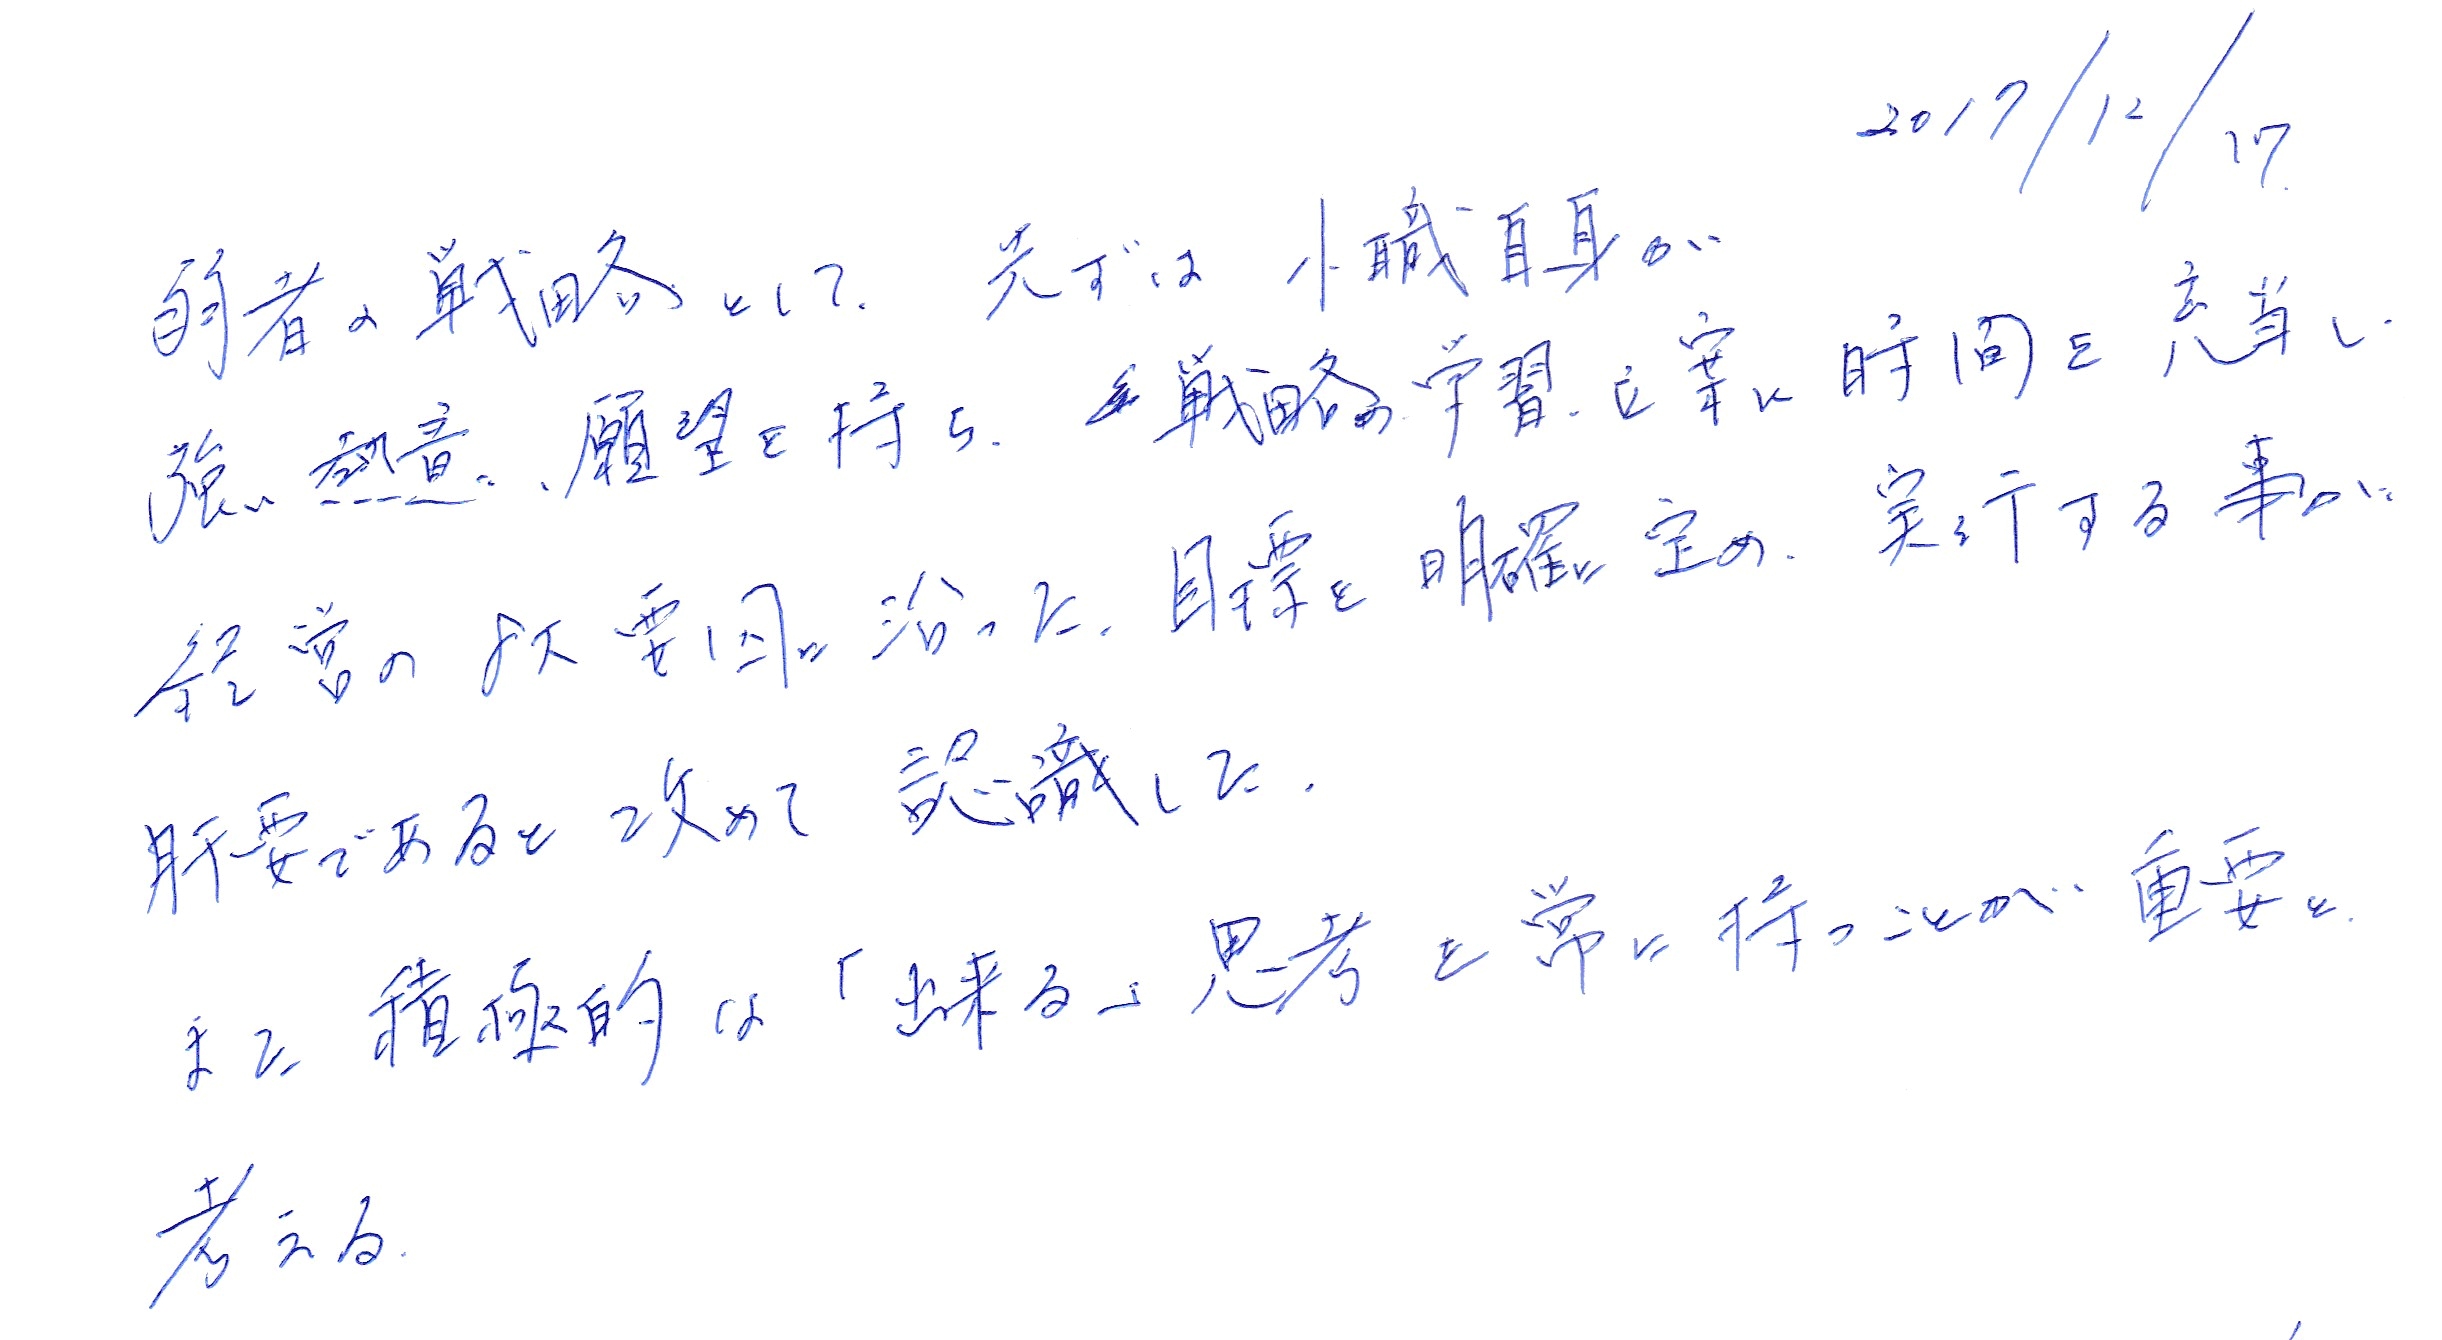 2017/12/17
弱者の戦略として、先ずは小職自身が
強い熱意、願望を持ち、戦略の学習、立案に時間を充当し
経営の8大要因に沿った、目標を明確に定め、実行する事が
肝要であると改めて認識した。
また積極的な「出来る」思考を常に持つことが重要と
考える。